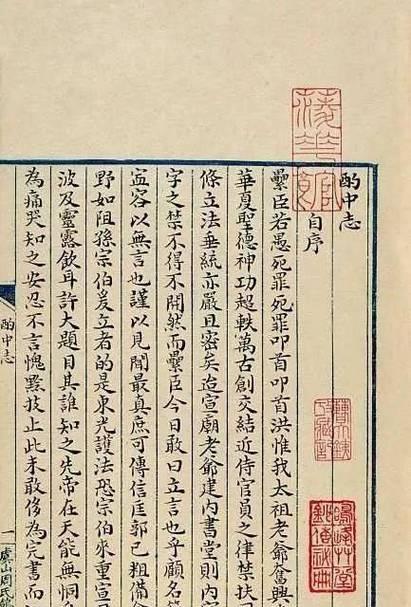 酌中志
自序
纍臣若愚死罪死罪叩首叩首洪惟我太祖老爺奮興
華夏聖德神功超軼萬古創交結近侍官員之律禁扶
條立法垂統亦嚴且密矣迨宣廟老爺建內書堂則內
字之禁不得不開然而纍臣今日敢曰立言也乎顧名
寍容以無言也謹以見聞最真庶可傳信匡郭已粗備
野如阻孫宗伯爰立者的是東光護法恐宗伯來重宣
波及靈露飲耳許大題目其誰知之先帝在天能無恫
為痛哭知之安忍不言愧黔技上此未敢侈為完書而
酌中志
一
鳴野山房
鈔傳祕冊